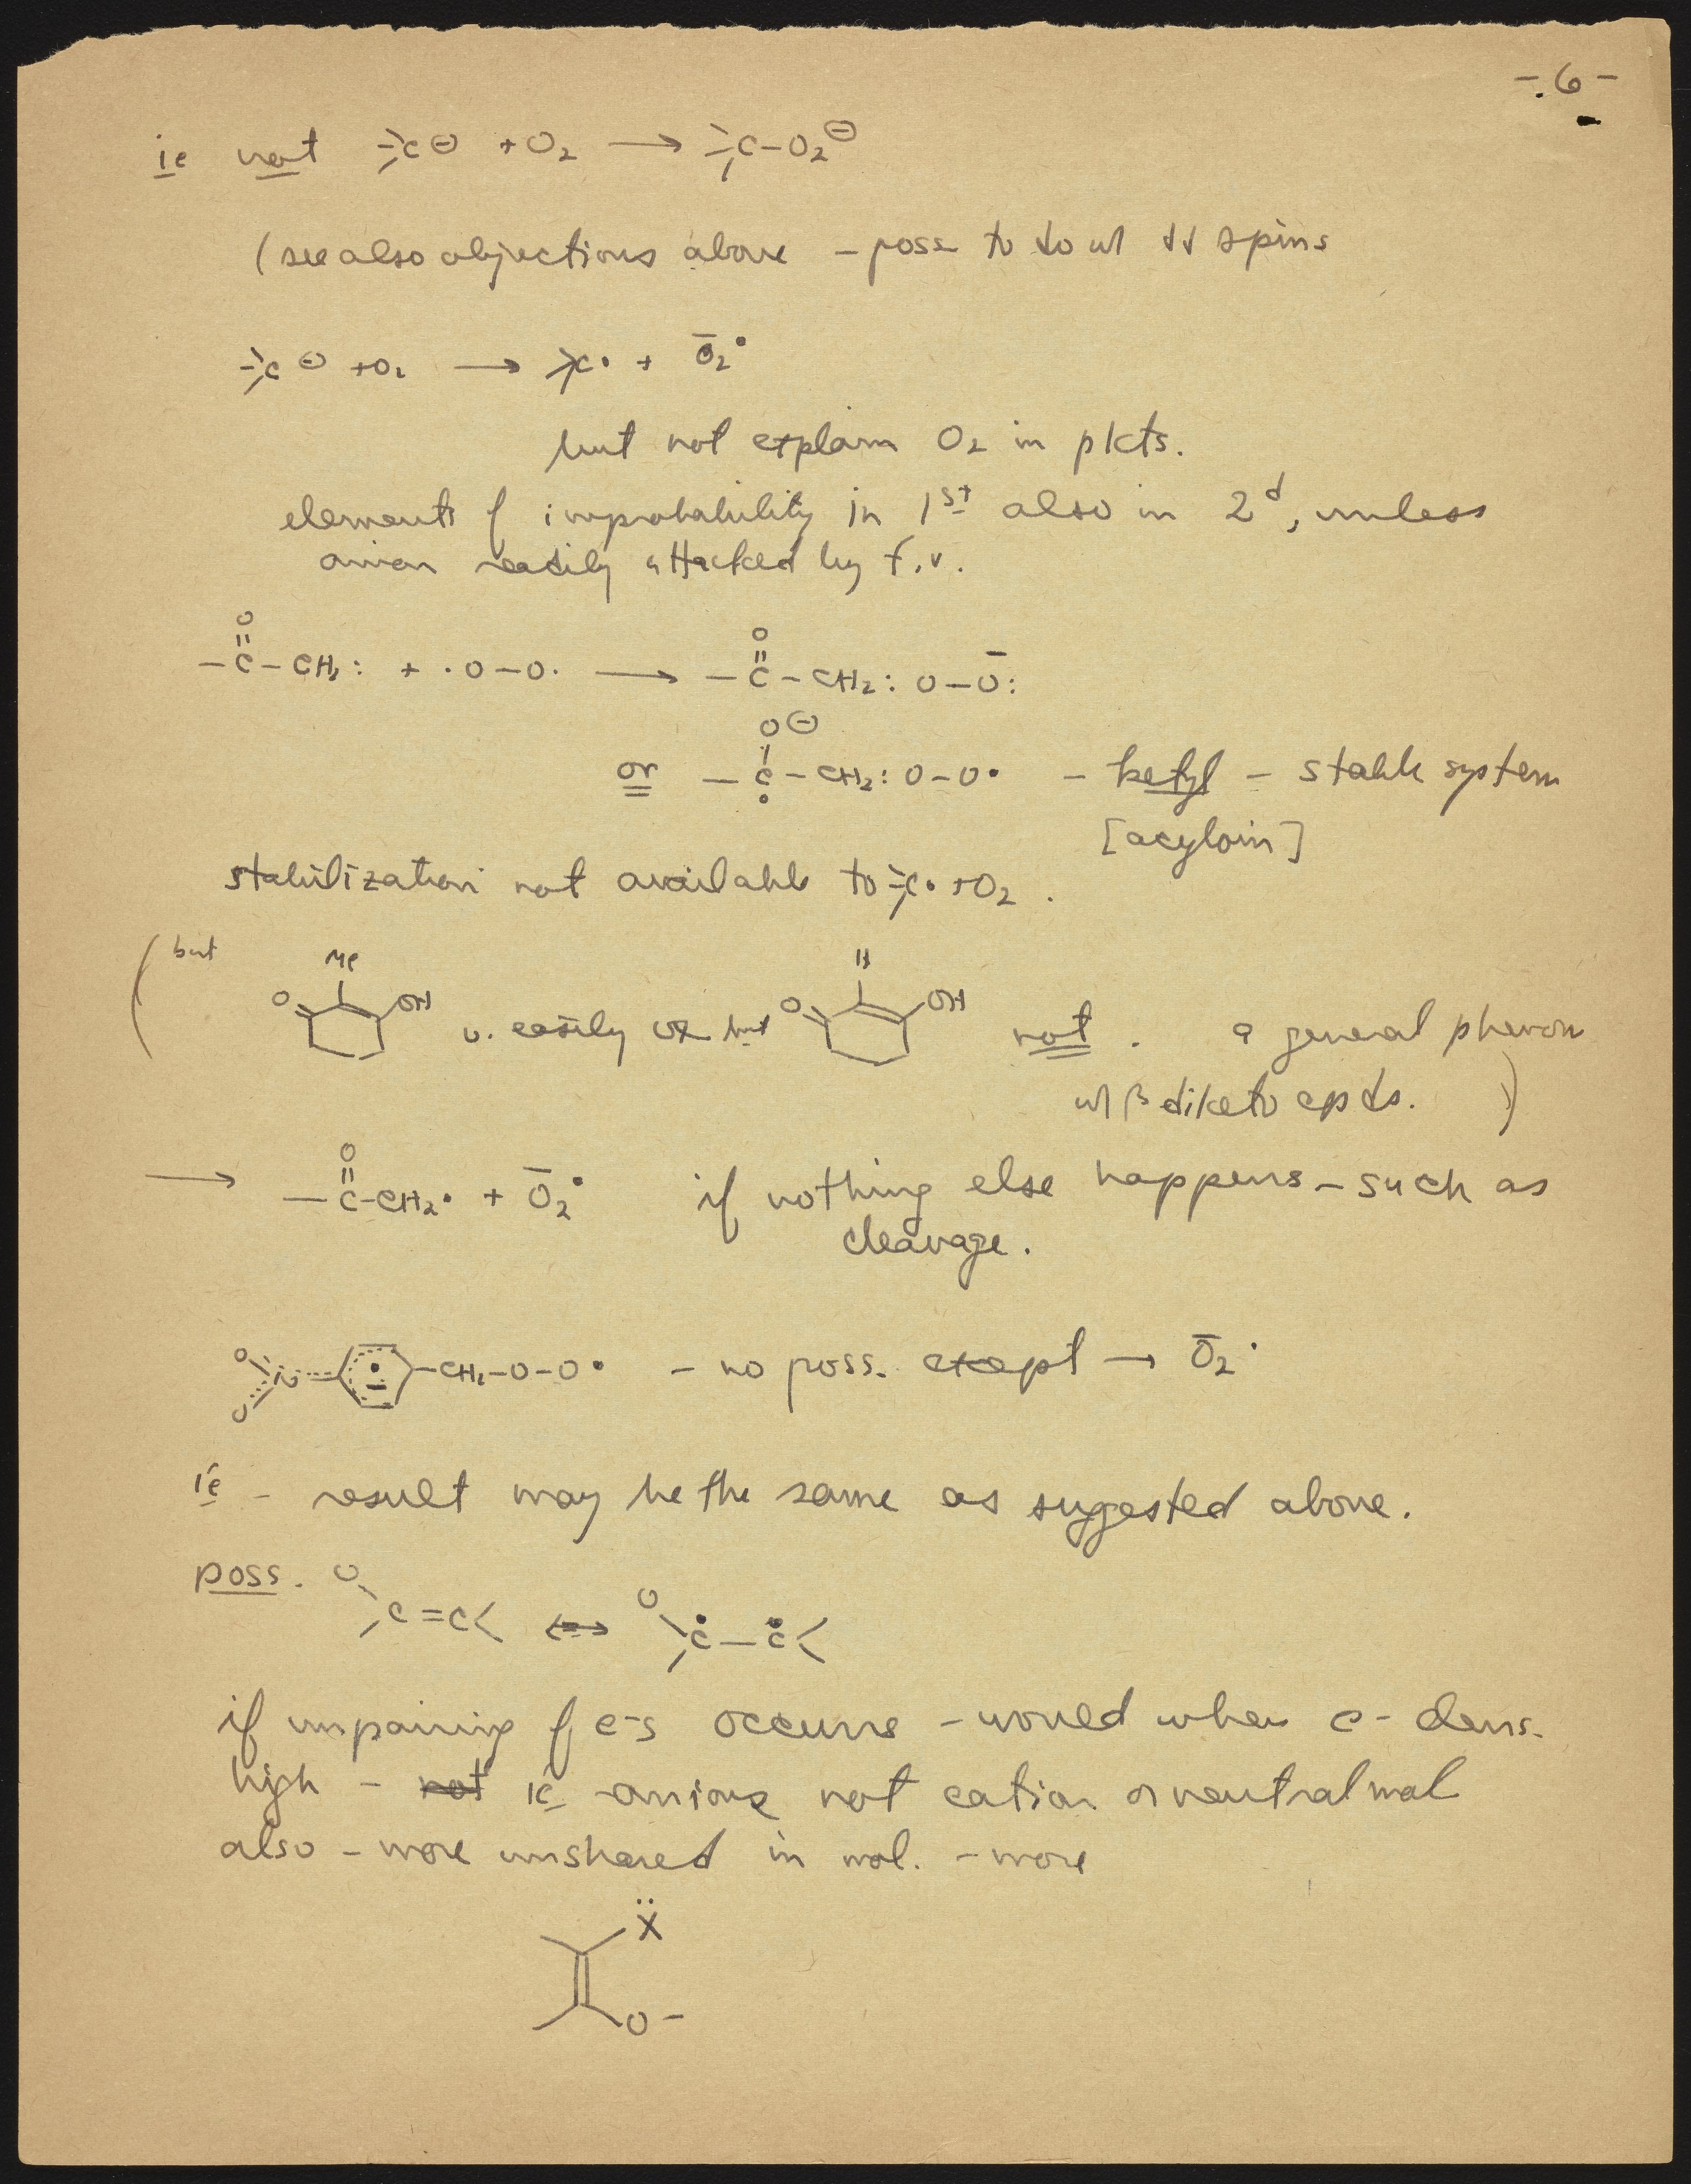 -6-
ie not -C⊖ + O2 → -C-O2⊖
(see also objections above - poss to do w/ ↓↓ spins
-C⊖ + O2 → C• + Ō2•
but not explain O2 in pdcts.
elements of improbability in 1st also in 2d, unless
anion readily attacked by f.r.
O O
-C-CH2: + ·O-O· → -C-CH2:O-Ō:
O⊖
or -C-CH2:O-O• - ketyl - stable system
[acyloin]
stabilization not available to -C• + O2.
(but Me H
O OH v. easily ox but O OH not. a general phenon
w/ β diketo cpds. )
O
→ -C-CH2• + Ō2• if nothing else happens - such as
cleavage.
O
N -CH2-O-O• - no poss. except → Ō2•
O
ie - result may be the same as suggested above.
poss. O O
C=C< ↔ Ċ-Ċ<
if unpairing of e-s occurs - would when e- dens.
high - not ie anions not cation or neutral mol
also - more unshared in mol. - more
Ẍ
O-